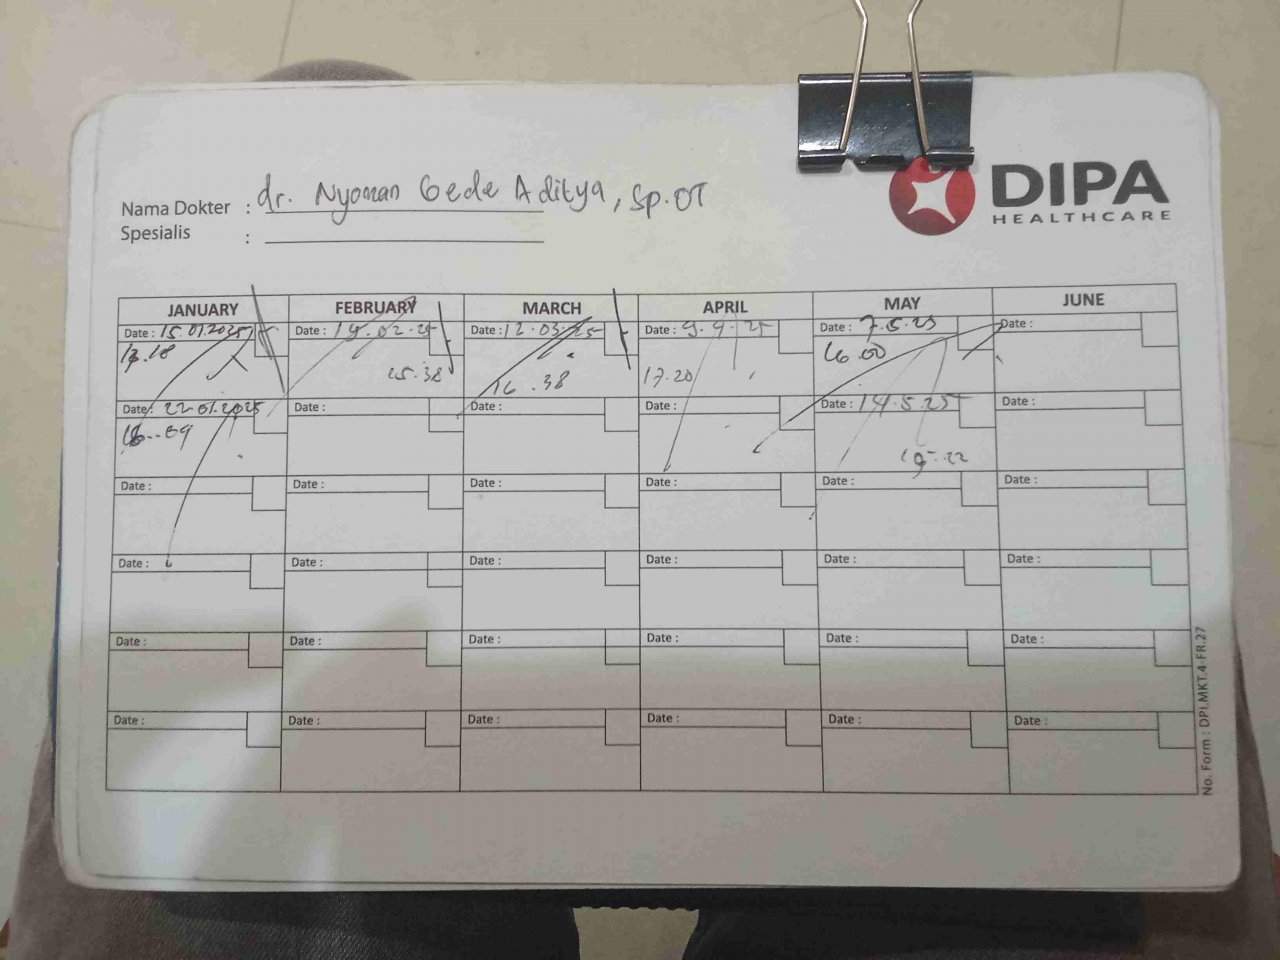 DIPA
HEALTHCARE
Nama Dokter : dr. Nyoman Gede Aditya, Sp.OT
Spesialis :
JANUARY FEBRUARY MARCH APRIL MAY JUNE
Date : 15.01.2025 Date : 19.02.25 Date : 12.03.25 Date : 9.4.25 Date : 7.5.25 Date :
16.00
15.38 16.38 17.20
Date : 22.01.2025 Date : Date : Date : Date : 14.5.25 Date :
Date : Date : Date : Date : Date : Date :
Date : Date : Date : Date : Date : Date :
Date : Date : Date : Date : Date : Date :
Date : Date : Date : Date : Date : Date :
No. Form : DPI.MKT.4-FR.27